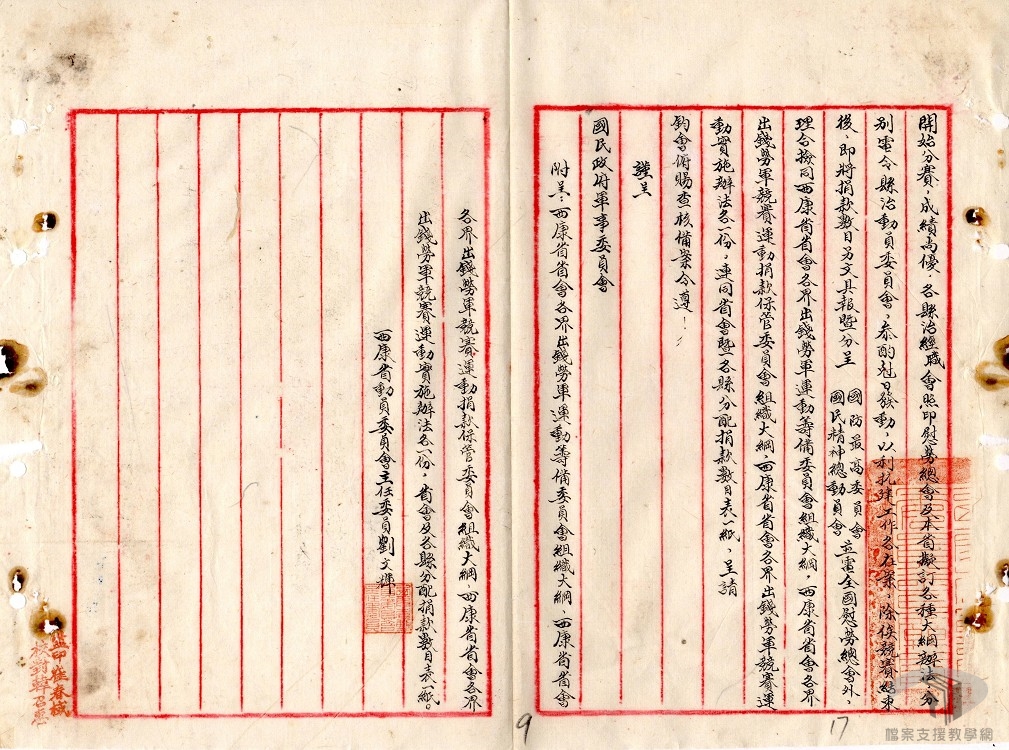 開始分賽，成績尚優，各縣治經職會照印慰勞總會及本省擬訂各種大綱辦法，分
別電令縣治動員委員會，參酌尅日發動，以利抗建工作各在案，除俟競賽結束
後，即將捐款數目另文具報暨分呈
國防最高委員會
國民精神總動員會
並電全國慰勞總會外，
理合檢同西康省省會各界出錢勞軍運動籌備委員會組織大綱，西康省省會各界
出錢勞軍競賽運動捐款保管委員會組織大綱，西康省省會各界出錢勞軍競賽運
動實施辦法各一份，連同省會暨各縣分配捐款數目表一紙，呈請
鈞會俯賜查核備案令遵！
謹呈
國民政府軍事委員會
附呈：西康省省會各界出錢勞軍運動籌備委員會組織大綱、西康省省會
各界出錢勞軍競賽運動捐款保管委員會組織大綱、西康省省會各界
出錢勞軍競賽運動實施辦法各一份，省會及各縣分配捐款數目表一紙。
西康省動員委員會主任委員劉文輝
監印崔春城
校對韓石愚
9
17
檔案支援教學網